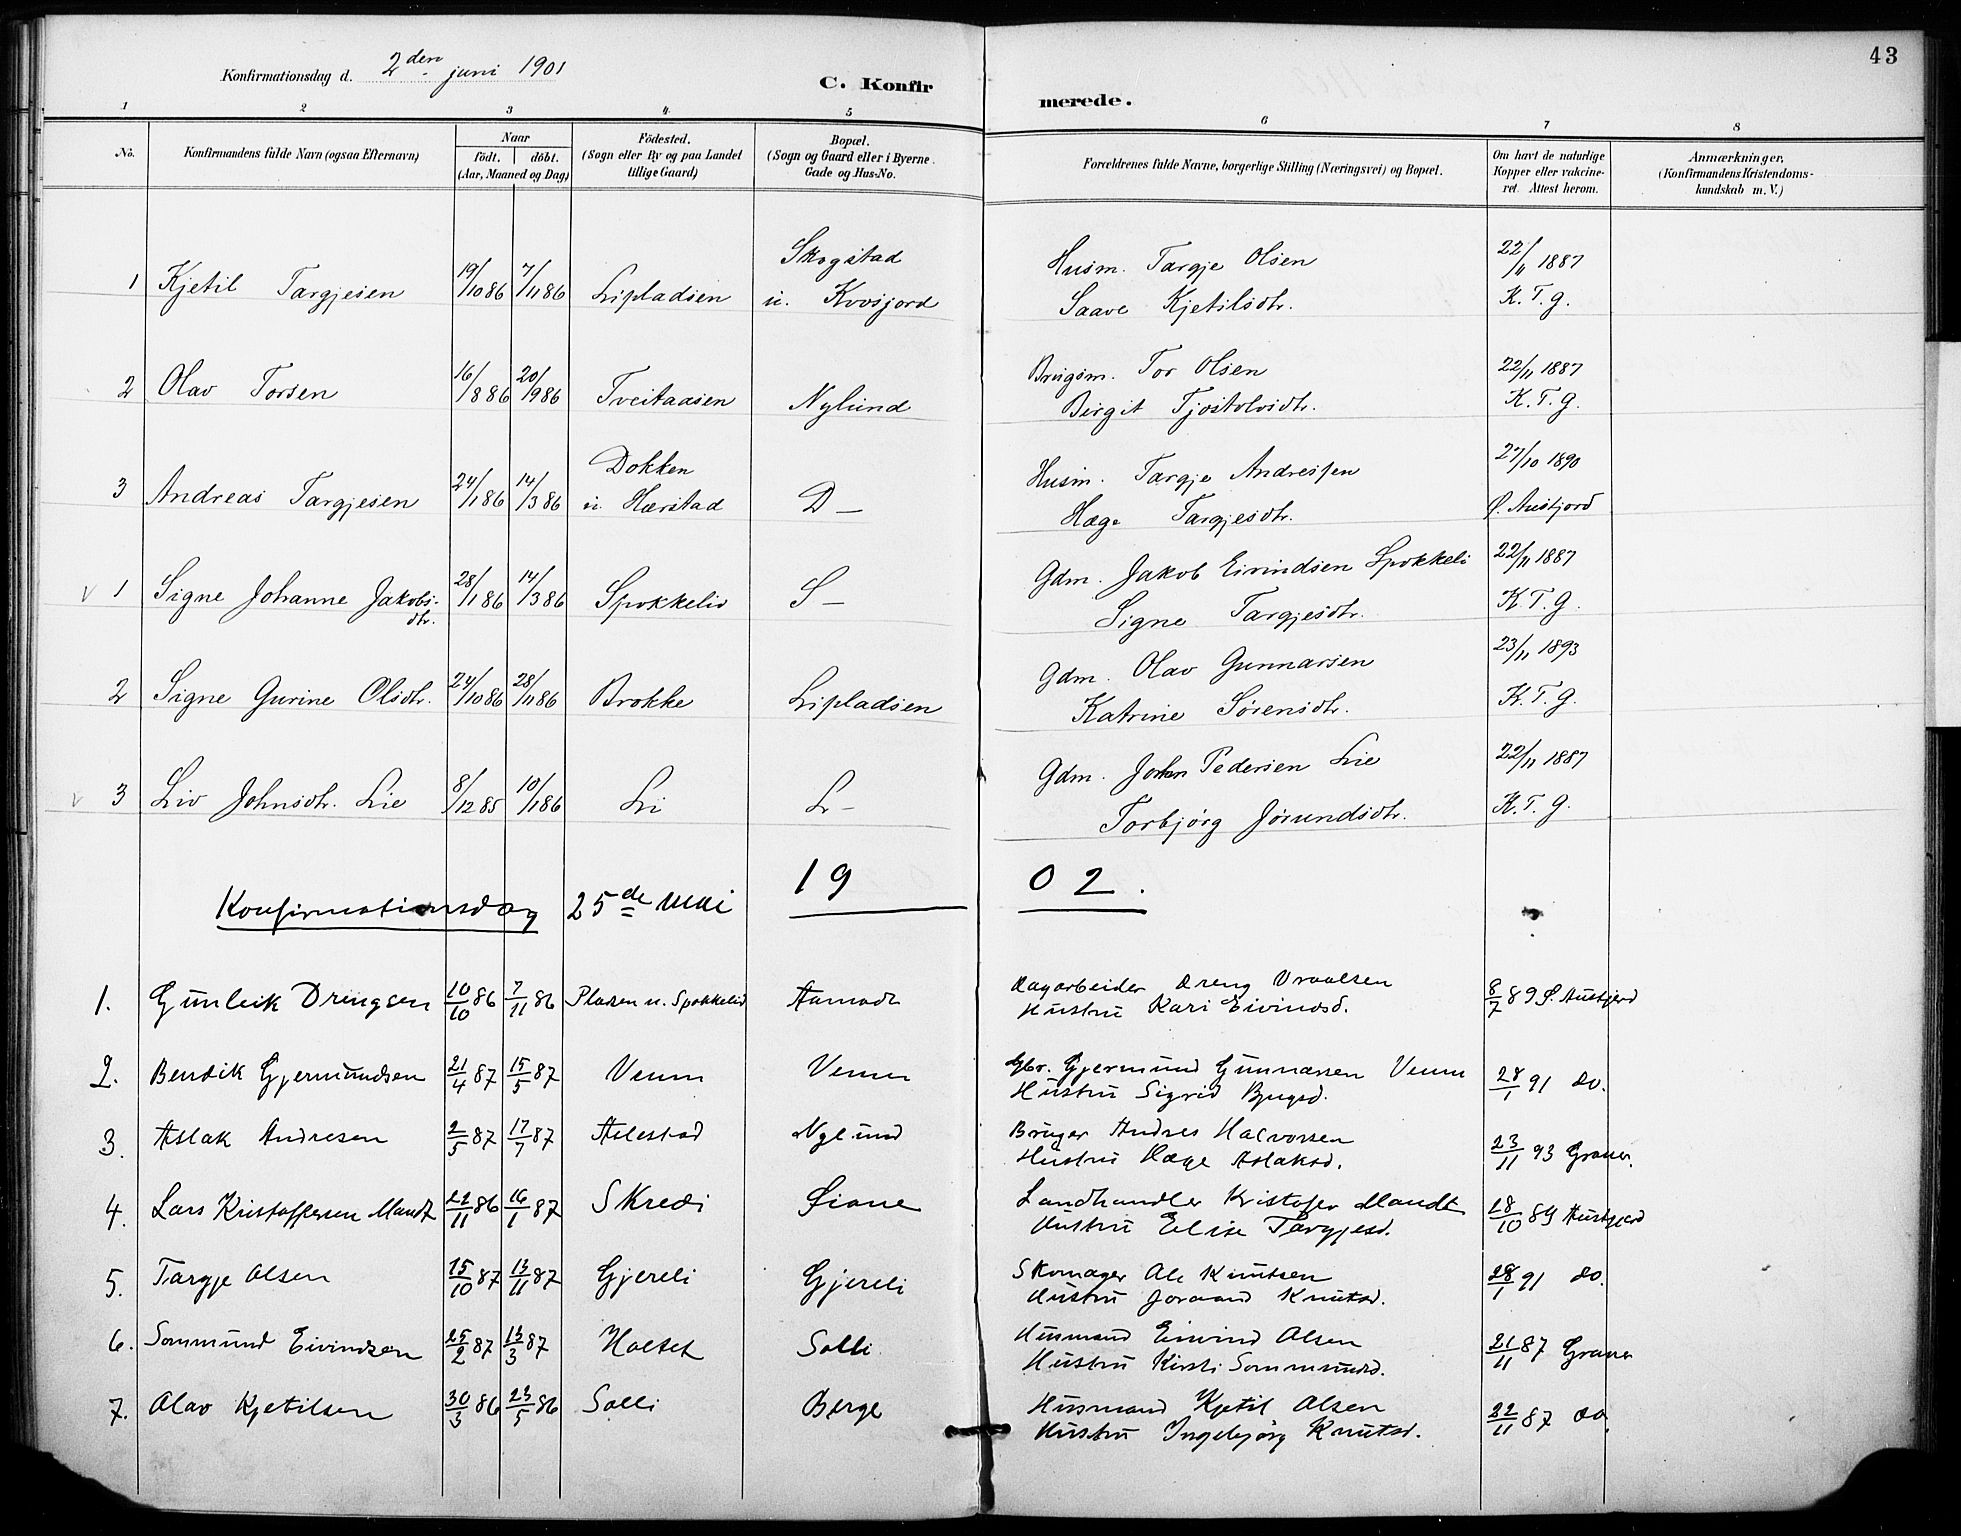 43
Konfirmationsdag d. 2den juni 1901
C. Konfirmerede.
1 2 3 4 5 6 7 8
No.
Konfirmandens fulde Navn (ogsaa Efternavn)
Naar
födt. döbt.
(Aar, Maaned og Dag)
Födested.
(Sogn eller By og paa Landet
tillige Gaard)
Bopæl.
(Sogn og Gaard eller i Byerne
Gade og Hus-No.
Forældrenes fulde Navne, borgerlige Stilling (Næringsvei) og Bopæl.
Om havt de naturlige
Kopper eller vakcine-
ret. Attest herom.
Anmærkninger,
(Konfirmandens Kristendoms-
kundskab m. V.)
1 Kjetil Targjesen 19/10 86 7/11 86 Lipladsen Skogstad u. Kvosjord Husm. Targje Olsen 22/11 1887
Saave Kjetilsdtr. K. T. G.
2 Olav Torsen 16/8 86 20/9 86 Tveitaasen Nylund Brugsm. Tor Olsen 22/11 1887
Birgit Tjostolvsdtr. K. T. G.
3 Andreas Targjesen 24/1 86 14/3 86 Dokken u. Hærstad D— Husm. Targje Andressen 27/10 1890
Hæge Targjesdtr. Ø. Austjord
v 1 Signe Johanne Jakobs-dtr. 28/1 86 14/3 86 Spokkeliv S— Gdm. Jakob Eivindsen Spokkeli 22/11 1887
Signe Targjesdtr. K. T. G.
2 Signe Gurine Olsdtr. 24/10 86 28/11 86 Brokke Lipladsen Gdm. Olav Gunnarsen 23/11 1893
Katrine Sørensdtr. K. T. G.
v 3 Liv Johnsdtr. Lie 8/12 85 10/1 86 Li L— Gdm. John Pedersen Lie 22/11 1887
Torbjørg Jørundsdtr. K. T. G.
Konfirmationsdag 25de mai 1902.
1. Gunleik Drengsen 10/10 86 7/11 86 Pladsen u. Spokkelid Aamodt Dagarbeider Dreng Vraalsen 8/7 89 S. Austjord
Hustru Kari Eivindsd.
2. Bendik Gjermundsen 21/4 87 15/5 87 Venum Venum Gbr. Gjermund Gunnarsen Venum 28/1 91 do.
Hustru Sigrid Bjugsd.
3. Aslak Andresen 2/5 87 17/7 87 Aslestad Nylund Bruger Andres Halvorsen 23/11 93 Graner.
Hustru Hæge Aslaksd.
4. Lars Kristoffersen Mandt 22/11 86 16/1 87 Skredi Øiane Landhandler Kristofer Mandt 28/10 89 Austjord
Hustru Elise Targjesd.
5. Targje Olsen 15/10 87 13/11 87 Gjereli Gjereli Skomager Ole Knutsen 28/1 91 do.
Hustru Joraand Knutsd.
6. Sommund Eivindsen 25/2 87 13/3 87 Holtet Solli Husmand Eivind Olsen 21/11 87 Graner
Hustru Kirsti Sommundsd.
7. Olav Kjetilsen 30/3 86 23/5 86 Solli Berge Husmand Kjetil Olsen 22/11 87 do.
Hustru Ingebjørg Knutsd.